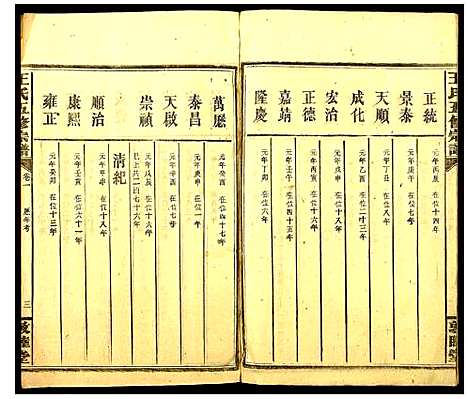 王氏五修宗譜
正統 元年丙辰 在位十四年
景泰 元年庚午 在位七年
天順 元年丁丑 在位八年
成化 元年乙酉 在位二十三年
宏治 元年戊申 在位十八年
正德 元年丙寅 在位十六年
嘉靖 元年壬午 在位四十五年
隆慶 元年丁卯 在位六年
敦睦堂
萬歷 元年癸酉 在位四十七年
泰昌 元年庚申 在位一年
天啟 元年辛酉 在位七年
崇禎 元年戊辰 在位十六年
已上共二百七十六年
清紀
順治 元年甲申 在位十八年
康熙 元年壬寅 在位六十一年
雍正 元年癸卯 在位十三年
王氏五修宗譜
卷一 歷年考 三
敦睦堂